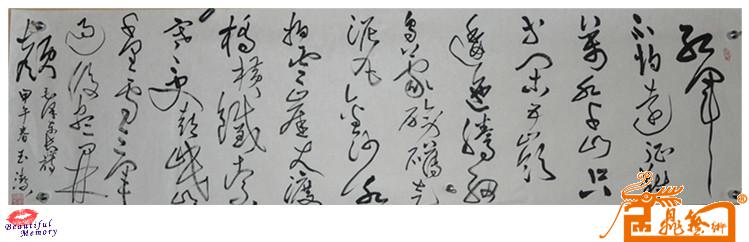 红军
不怕远征难
万水千山只
等闲五岭
逶迤腾细
浪乌蒙磅礴走
泥丸金沙水
拍云崖暖大渡
桥横铁索
寒更喜岷山
千里雪三军
过后尽开
颜
毛泽东长征诗
甲午春
Beautiful
Memory